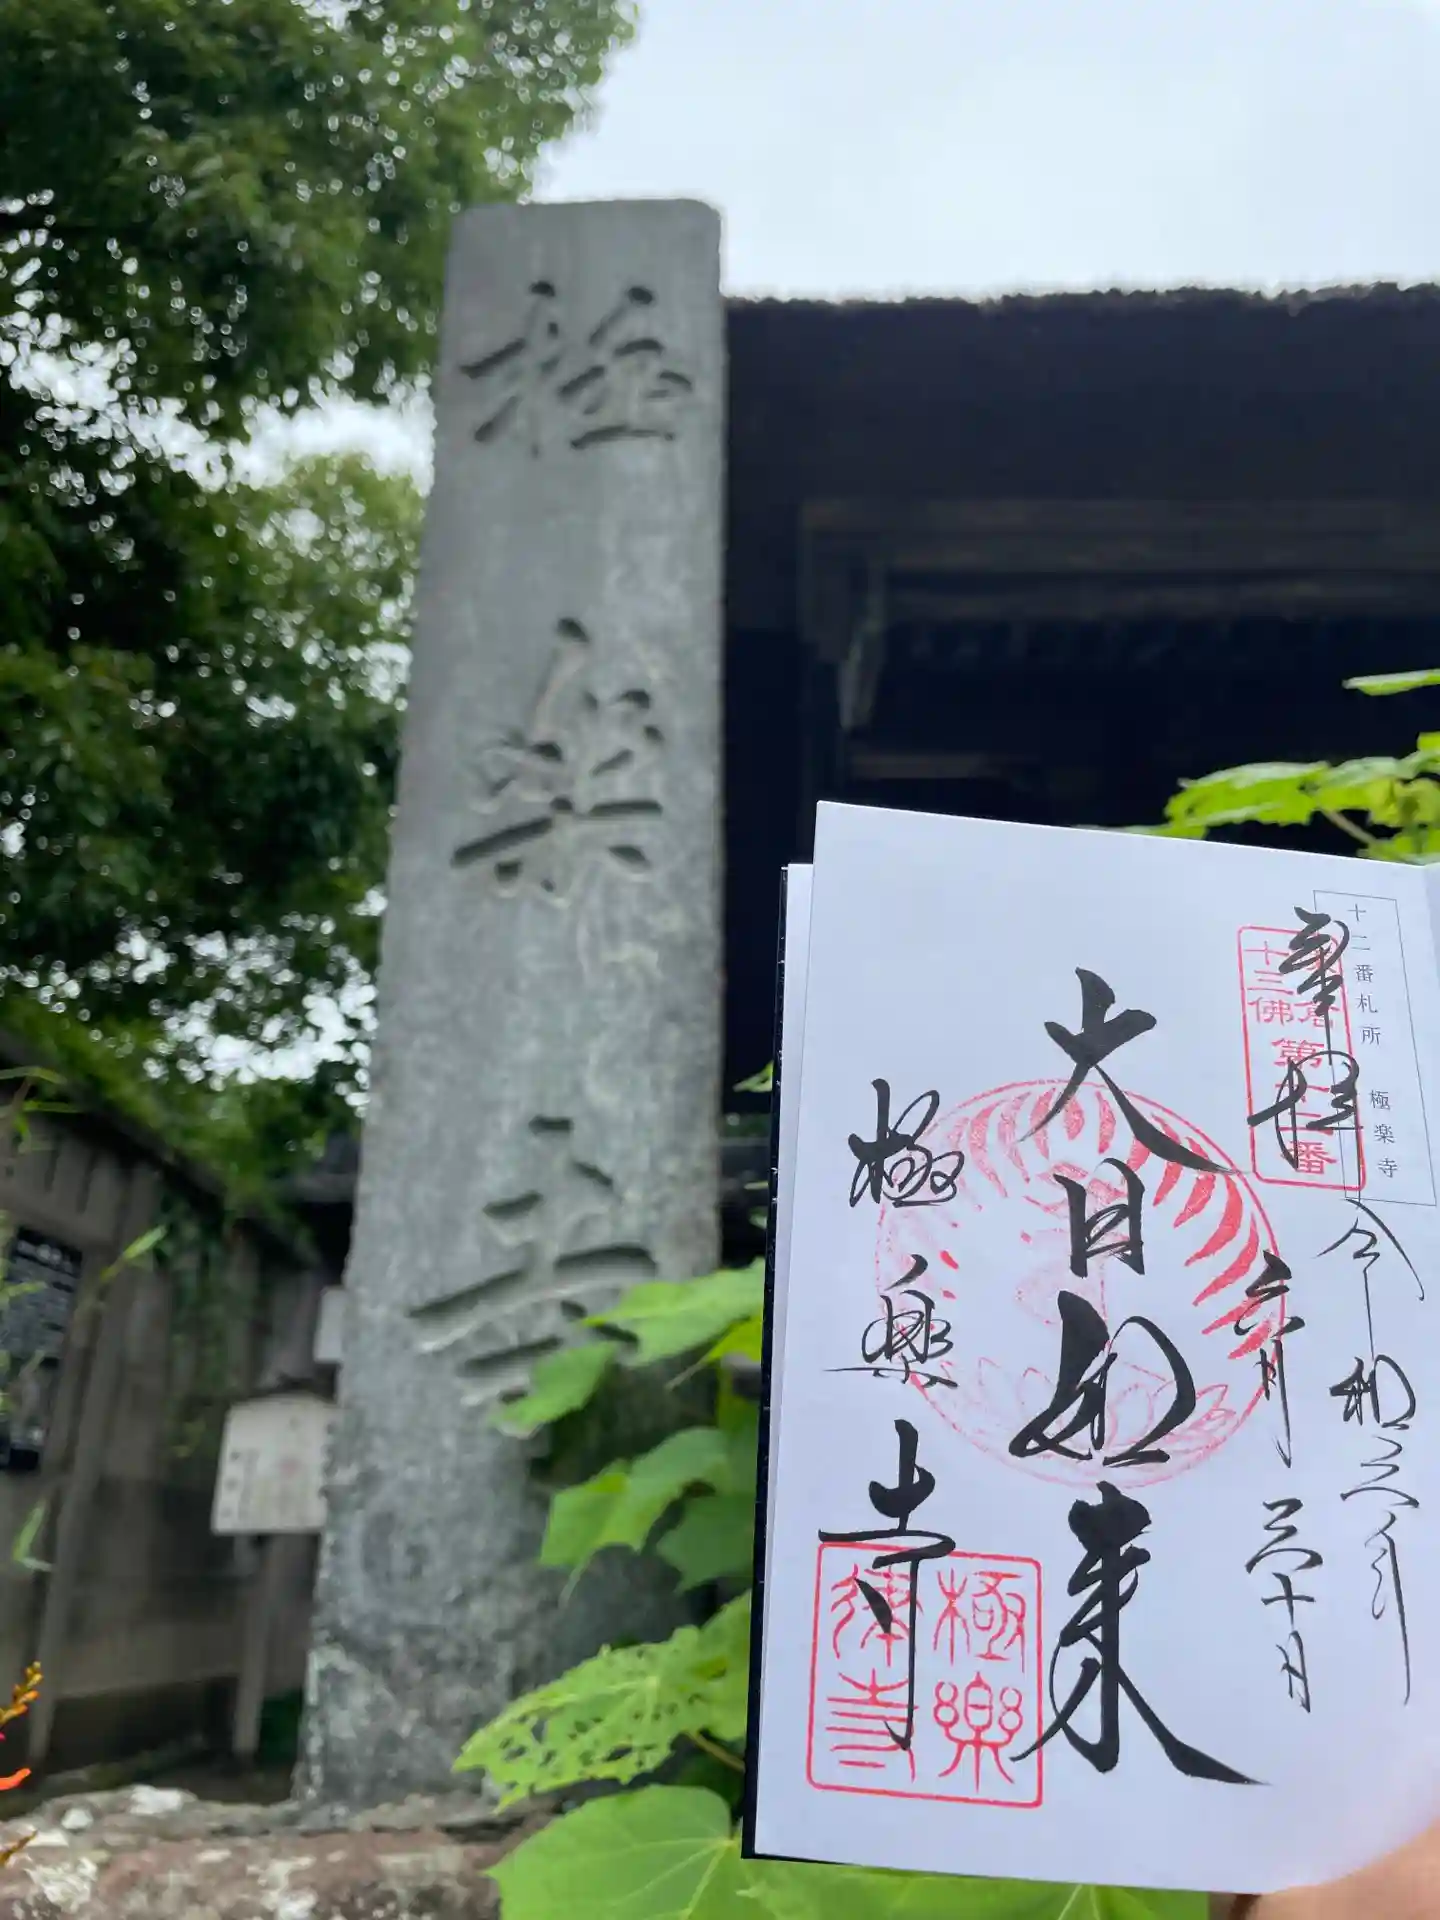 極楽寺
十二番札所 極楽寺
奉拝
鎌倉
十三佛
第十二番
令和六年
六月三十日
大日如来
極楽寺
極樂
律寺